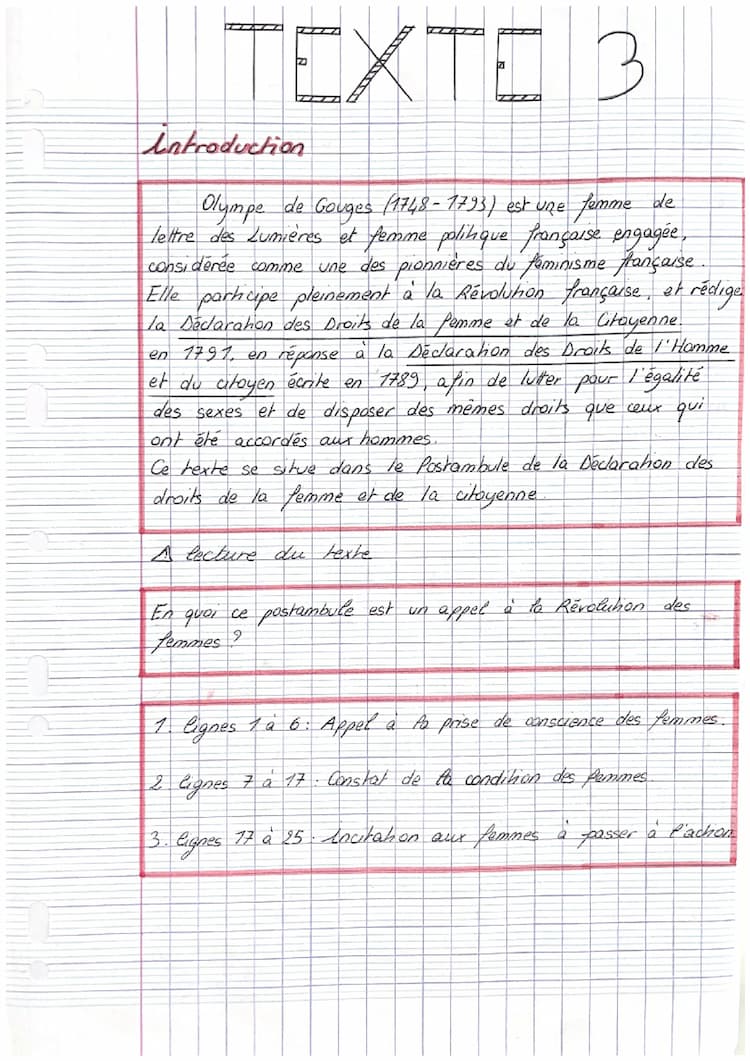 TEXTE 3
introduction
Olympe de Gouges (1748-1793) est une femme de
lettre des Lumières et femme politique française engagée,
considérée comme une des pionnières du féminisme française.
Elle participe pleinement à la Révolution française, et rédige
la Déclaration des Droits de la femme et de la Citoyenne.
en 1791, en réponse à la Déclaration des Droits de l'Homme
et du citoyen écrite en 1789, afin de lutter pour l'égalité
des sexes et de disposer des mêmes droits que ceux qui
ont été accordés aux hommes.
Ce texte se situe dans le Postambule de la Déclaration des
droits de la femme et de la citoyenne.
⚠ lecture du texte
En quoi ce postambule est un appel à la Révolution des
femmes ?
1. Lignes 1 à 6 : Appel à la prise de conscience des femmes.
2 Lignes 7 à 17 : Constat de la condition des femmes.
3. Lignes 17 à 25 : Incitation aux femmes à passer à l'action